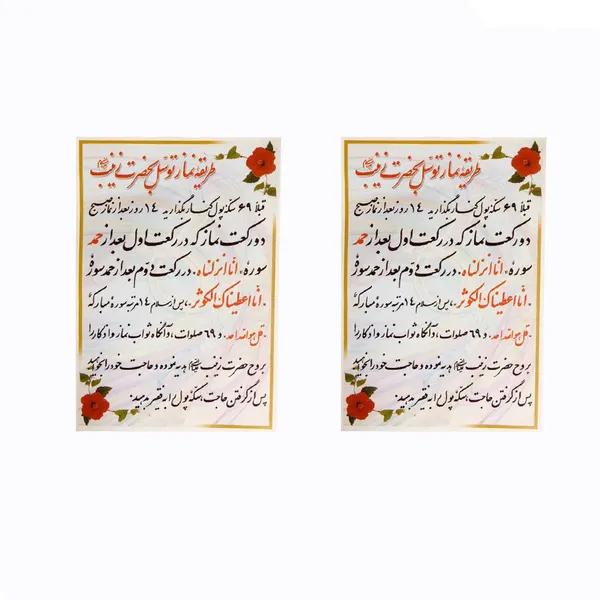 طریقه نماز توسل بحضرت زینب
قبلاً ۶۹ سکه پول کنار بگذارید ۱۴ روز بعد از نماز صبح
دو رکعت نماز که در رکعت اول بعد از حمد
سوره، انا انزلناه. در رکعت دوم بعد از حمد سوره
.انا اعطیناک الکوثر.، پس از سلام ۱۴ مرتبه سوره مبارکه
.قل هو الله احد. و ۶۹ صلوات، و آنگاه ثواب نماز و اذکار را
بروح حضرت زینب هدیه نموده و حاجت خود را بخواهید
پس از گرفتن حاجت، سکه پول را به فقیر بدهید.
طریقه نماز توسل بحضرت زینب
قبلاً ۶۹ سکه پول کنار بگذارید ۱۴ روز بعد از نماز صبح
دو رکعت نماز که در رکعت اول بعد از حمد
سوره، انا انزلناه. در رکعت دوم بعد از حمد سوره
.انا اعطیناک الکوثر.، پس از سلام ۱۴ مرتبه سوره مبارکه
.قل هو الله احد. و ۶۹ صلوات، و آنگاه ثواب نماز و اذکار را
بروح حضرت زینب هدیه نموده و حاجت خود را بخواهید
پس از گرفتن حاجت، سکه پول را به فقیر بدهید.